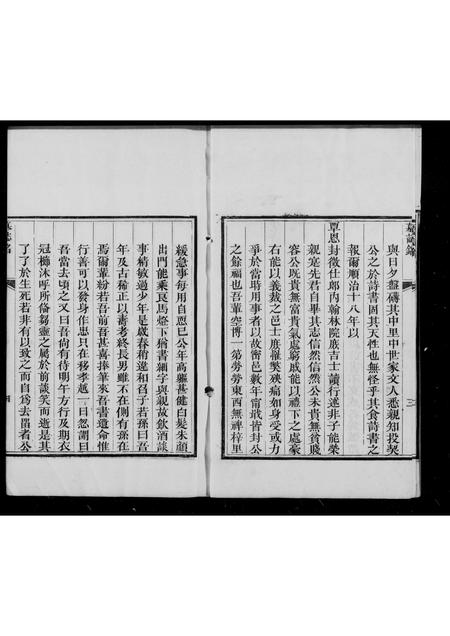 與日夕盤礴其中里中世家文人悉親知投契
公之於詩書固其天性也無怪乎其食詩書之
報爾順治十八年以
覃恩封徵仕郎內翰林院庶吉士讀行述非子能榮
親寔先君自畢其志信然信然公未貴無貧賤
容公既貴無富貴氣處窮戚能以禮下之處豪
右能以義裁之邑士庶罹獘殃痛如身受或力
爭於當時用事者以故密邑數年甯戢皆封公
之餘福也吾輩空博一第勞勞東西無裨梓里
緩急事每用自慝巳公年高軀甚健白髮朱顏
出門能乘良馬燈下猶書細字與親故飲酒談
事精敏過少年是歲春稍違和召子若孫曰吾
年及古稀正以壽考終長男雖不在側有孫在
焉爾輩紛若吾前吾甚喜捧筆來吾書遺命惟
行善可以發身作忠只在移孝越一日忽謂曰
吾當去頃之又曰吾尙有待明午方行及期衣
冠櫛沐呼所偹芻靈之屬於前談笑而逝是其
了了於生死若非有以致之而自爲去畱者公